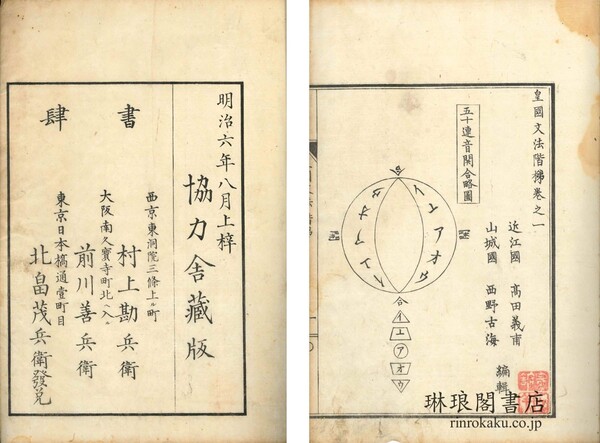 皇國文法階梯卷之一
近江國 高田義甫
山城國 西野古海
編輯
五十連音開合略圖
合
イ
エ
ア
オ
ウ
合
イ
エ
ア
オ
ウ
明治六年八月上梓
協力舎藏版
書肆
西京東洞院三條上ル町
村上勘兵衛
大阪南久寶寺町北ヘ入
前川善兵衛
東京日本橋通壹町目
北畠茂兵衛發兌
琳琅閣書店
rinrokaku.co.jp